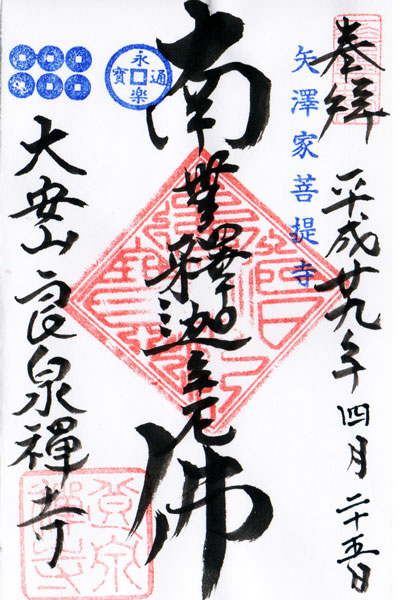 奉拝
平成廿九年四月二十五日
矢澤家菩提寺
南無釋迦牟尼佛
永樂通寳
大安山良泉禅寺